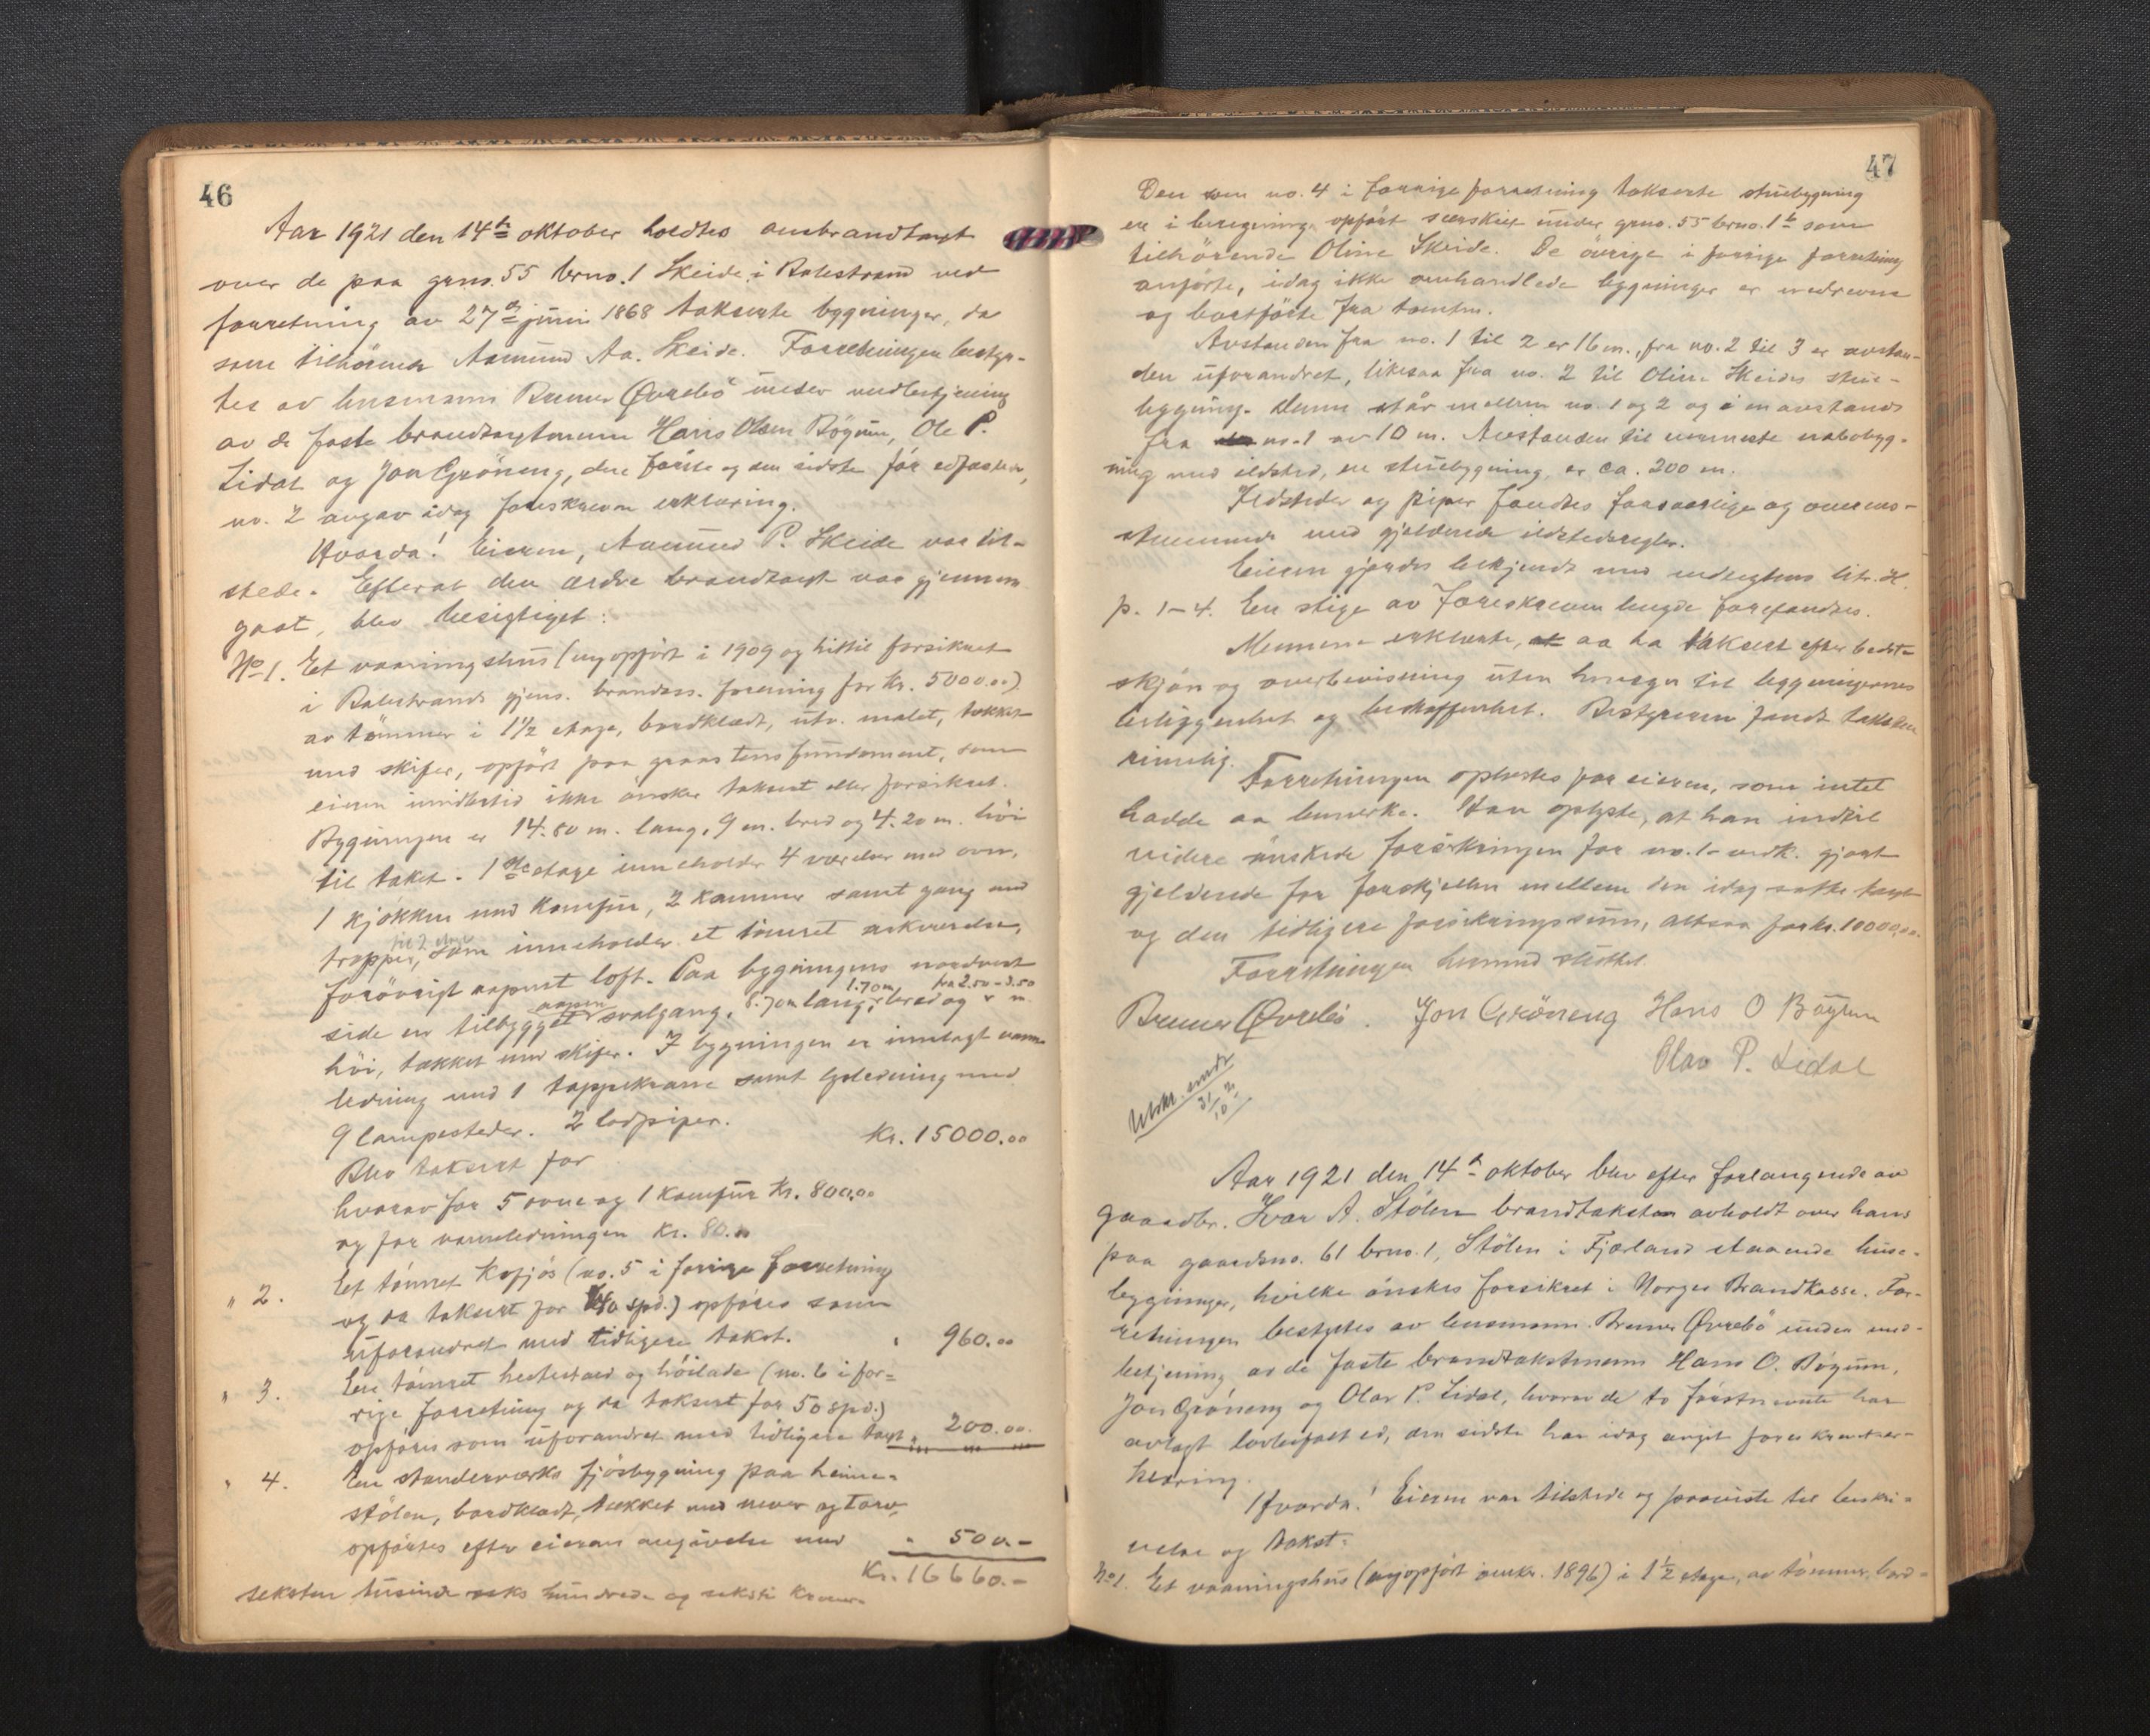 46
Aar 1921 den 14de oktober holdtes ombrandtaxt
over de paa grno. 55 brno. 1 Skeide i Balestrand ved
forretning av 27de juni 1868 takserte bygninger, da
som tilhørende Aamund Aa. Skeide. Forretningen besty-
tes av lensmann Brener Øvrebö under medbetjening
av de faste brandtaxtmenn Hans Olsen Bögum, Ole P.
Lidal og Jon Gröneng, den förste og den sidste før edfæstede,
no. 2 avgav idag foreskreven erklæring.
Hvorda! Eieren, Aamund P. Skeide var til-
stede. Efterat den ældre brandtaxt var gjennem-
gaat, blev besigtiget:
No 1. Et vaaningshus (nyopført i 1909 og hittil forsikret
i Balestrands gjens. brandass. forening for Kr. 5000.00)
av tømmer i 1½ etage, bordklædt, utv. malet, tækket
med skifer, opført paa graastens fundament, som
eieren imidlertid ikke ønsker taksert eller forsikret.
Bygningen er 14.80 m. lang, 9 m. bred og 4.20 m. höi
til taket. 1ste etage inneholder 4 værelser med ovn,
1 kjøkken med komfur, 2 kammer samt gang med
trapper, til 2 etage som inneholder et tømret arkværelse,
forövrigt aapent loft. Paa bygningens nordvest
side er tilbygget aapen svalgang, 8.70 m lang, 1.70 m bred og fra 2.50 - 3.50 m.
höi, tækket med skifer. I bygningen er inntagt vann-
ledning med 1 tappekrane samt lysledning med
9 lampesteder. 2 lodpiper.
Blev taksert for Kr. 15000.00
hvorav for 5 ovne og 1 komfur Kr. 800.00
og for vannledningen Kr. 80.00
" 2. Et tømret Kofjøs (no. 5 i forrige forretning
og da taksert for 240 spd.) opføres som
uforandret med tidligere takst. " 960.00
" 3. En tømret hestestald og höilade (no. 6 i for-
rige forretning og da taksert for 50 spd.)
opføres som uforandret med tidligere taxt " 200.00
" 4. En standerværks fjøsbygning paa heime-
stølen, bordklædt, tækket med never og torv,
opførtes efter eierens angivelse med " 500.-
Kr. 16660.-
seksten tusinde seks hundrede og seksti kroner
47
Den sem no. 4 i forrige forretning takserte stuebygning
er i beregning opført særskilt under grno. 55 brno. 1b som
tilhørende Oline Skeide. De övrige i forrige forretning
anførte, idag ikke omhandlede bygninger er nedrevne
og bortførte fra tomten.
Avstanden fra no. 1 til 2 er 16 m., fra no. 2 til 3 er avstan-
den uforandret, likesaa fra no. 2 til Oline Skeides stue-
bygning. Denne står mellem no. 1 og 2 og i en avstand
fra no. 1 av 10 m. Avstanden til nermeste nabobyg-
ning med ildsted, en stuebygning, er ca. 200 m.
Ildsteder og piper fandtes forsvarlige og overens-
stemmende med gjeldende ildstedsregler.
Eieren gjordes bekjendt med vedtegtens litr. H
p. 1-4. En stige av foreskreven lengde forefandtes.
Mennene erklærte, at aa ha taksert efter bedste
skjøn og overbevisning uten hensyn til bygningernes
beliggenhet og beskaffenhet. Bestyreren fandt taksten
rimelig.
Forretningen oplæstes for eieren, som intet
hadde aa bemerke. Han oplyste, at han indtil
videre ønskede forsikringen for no. 1 vedk. gjort
gjeldende for forskjellen mellem den idag satte taxt
og den tidligere forsikringssum, altsaa for kr. 10000.00.
Forretningen hermed sluttet.
Brener Øvrebö. Jon Gröneng Hans O Bögum
Olav P. Lidal
Utskr. sendt
31/10 21
Aar 1921 den 14de oktober blev efter forlangende av
gaardbr. Ivar A. Stölen brandtakstn avholdt over hans
paa gaardsno. 61 brno. 1, Stölen i Fjærland staaende huse-
bygninger, hvilke ønskes forsikret i Norges Brandkasse. For-
retningen bestyrtes av lensmann Brener Øvrebö under med-
betjening av de faste brandtakstmenn Hans O. Bögum,
Jon Gröneng og Olav P. Lidal, hvorav de to förstnevnte har
avlagt lovbefalt ed, den sidste har idag avgit foreskreven er-
klæring.
Hvorda! Eieren var tilstede og paaviste til beskri-
velse og takst:
No 1. Et vaaningshus (nyopført omkr. 1896) i 1½ etage, av tømmer, bord-